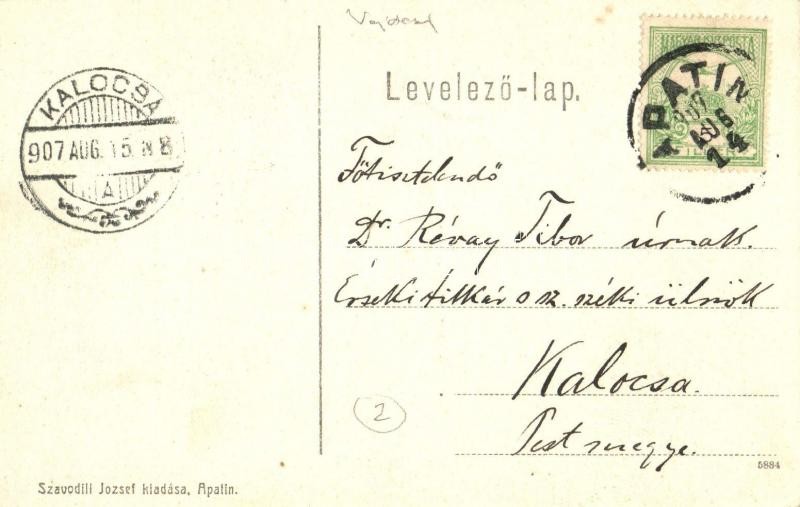 Levelező-lap.
MAGYAR KIR. POSTA
APATIN
907
AUG
14
KALOCSA
907 AUG. 15. N 8
A
Főtisztelendő
Dr. Révay Tibor úrnak.
Érseki titkár s sz. széki ülnök
Kalocsa.
Pest megye.
2
5884
Szavodill Jozsef kiadása, Apatin.